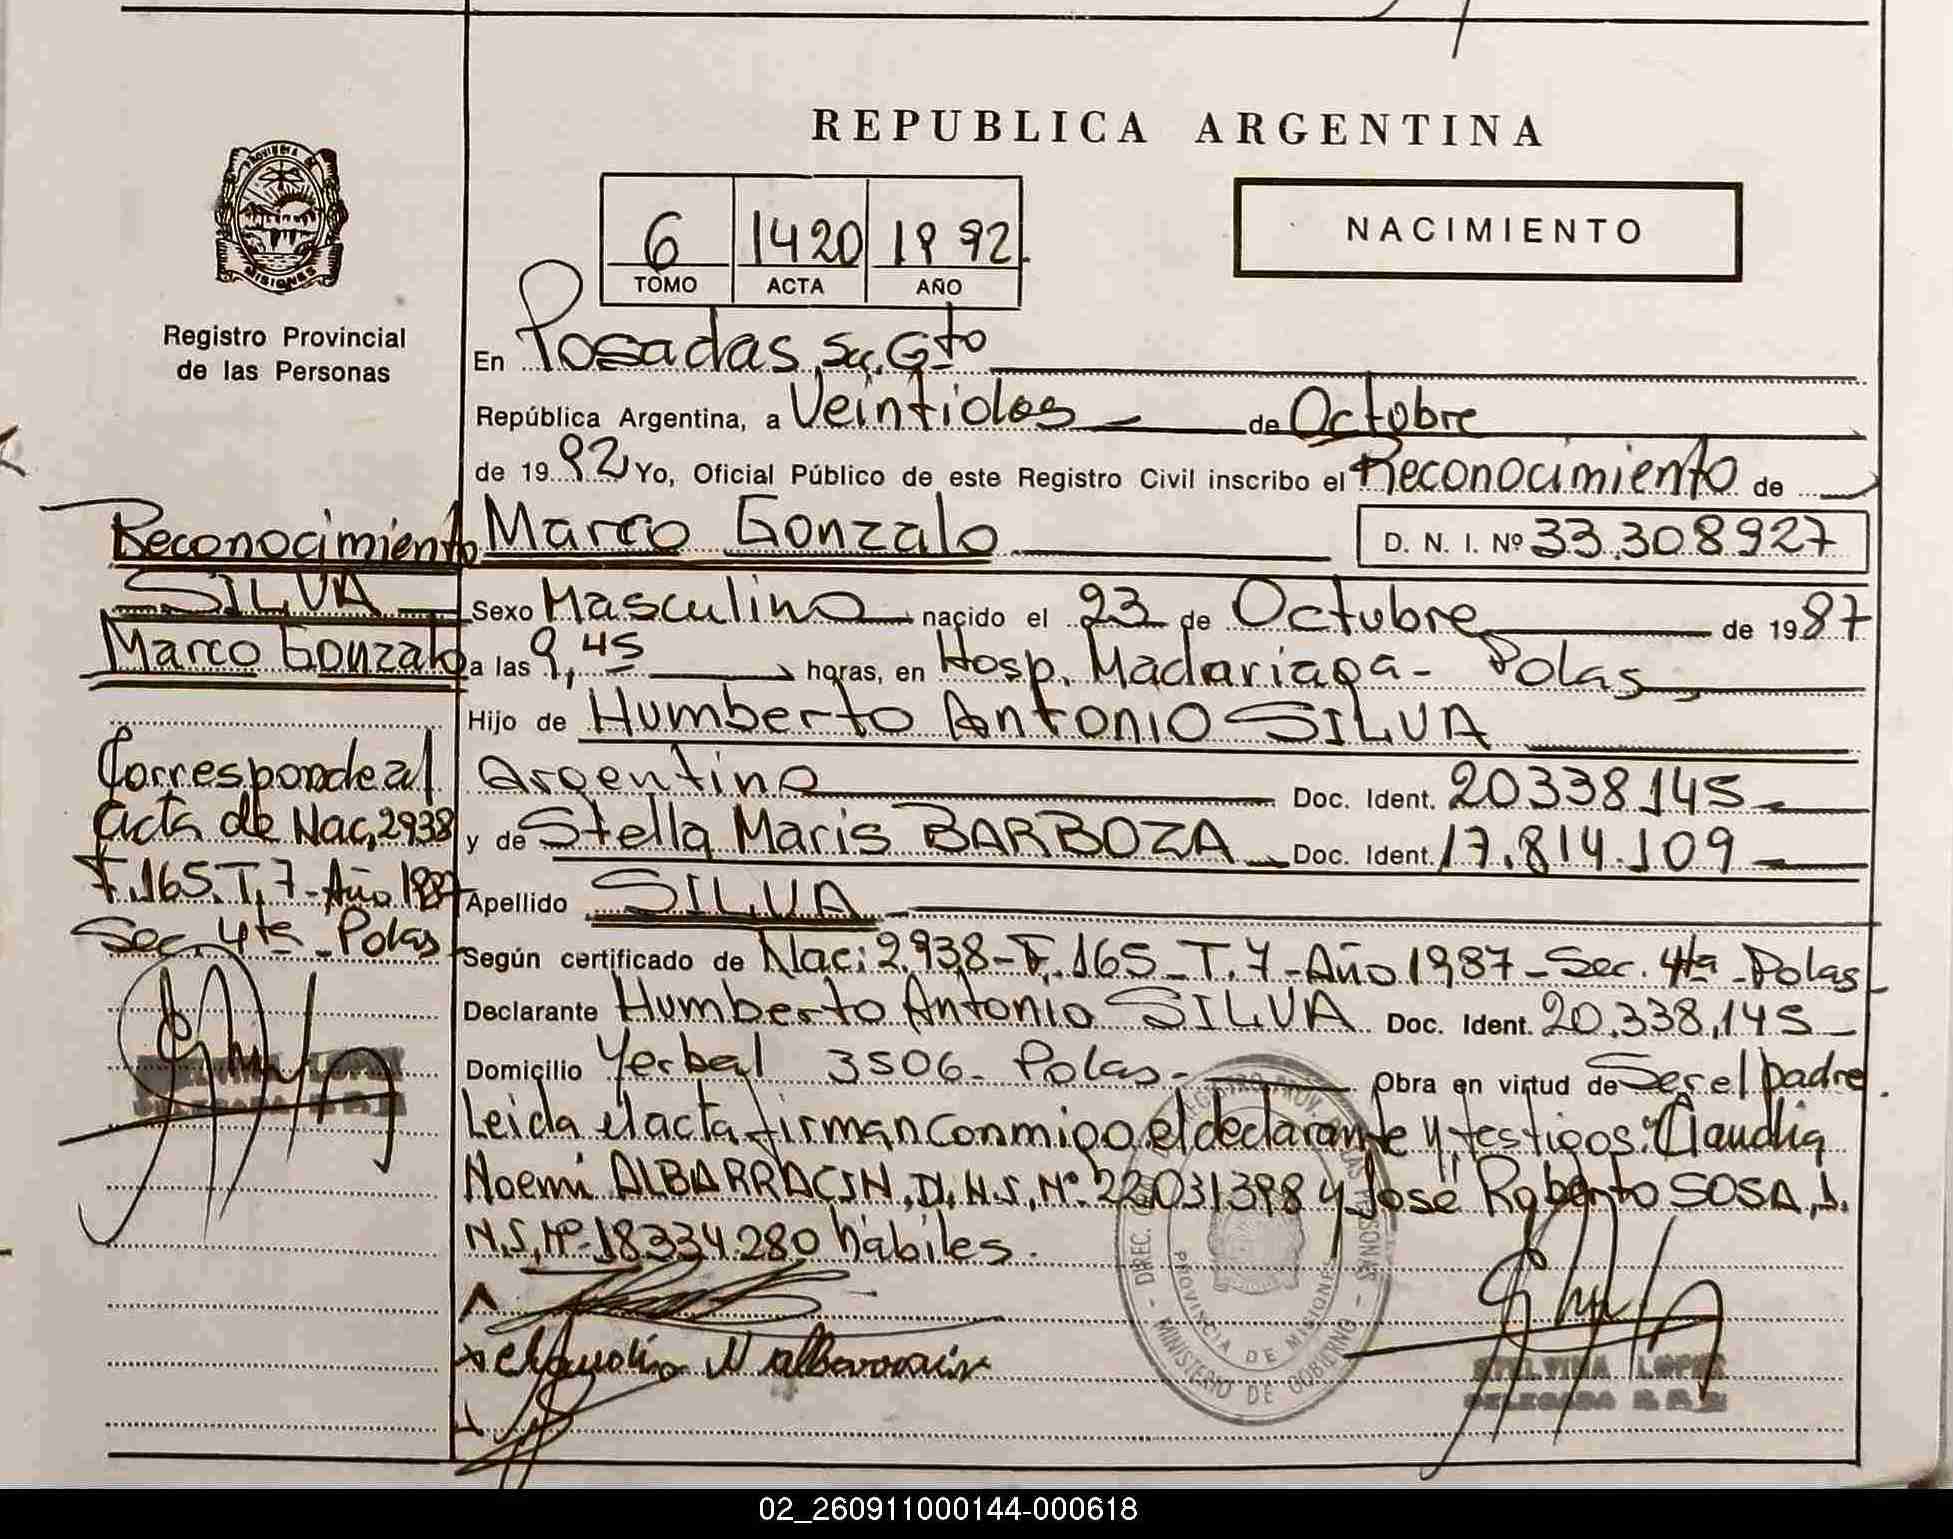 REPUBLICA ARGENTINA
PROVINCIA DE
MISIONES
Registro Provincial
de las Personas
6 1420 1992
TOMO ACTA AÑO
NACIMIENTO
En Posadas, Sec. 6to
República Argentina, a Veintidos de Octubre
de 1992 Yo, Oficial Público de este Registro Civil inscribo el Reconocimiento de
Marco Gonzalo D. N. I. Nº 33.308927
Sexo Masculino nacido el 23 de Octubre de 1987
a las 9,45 horas, en Hosp. Madariaga - Pdas
Hijo de Humberto Antonio SILVA
Argentino Doc. Ident. 20338145
y de Stella Maris BARBOZA Doc. Ident. 17.814.109
Apellido SILVA
Según certificado de Nac: 2.938-F.165-T.7-Año 1987-Sec. 4ta-Pdas-
Declarante Humberto Antonio SILVA Doc. Ident. 20.338.145
Domicilio Yerbal 3506- Pdas.- Obra en virtud de Ser el padre.
Leida el acta firman conmigo el declarante y testigos: Claudia
Noemi ALBARRACIN, D.N.I. Nº 22031398 y José Roberto SOSA, D.
N.I. Nº 18334.280 hábiles.
Claudia N albarracin
Reconocimiento
SILVA
Marco Gonzalo
Corresponde al
acta de Nac. 2938
F.165.T.7-Año 1987
Sec. 4ta - Pdas
DREC. REGISTRO PROV. DE LAS PERSONAS
PROVINCIA DE MISIONES
MINISTERIO DE GOBIERNO
ETELVINA LOPEZ
DELEGADA
02_260911000144-000618